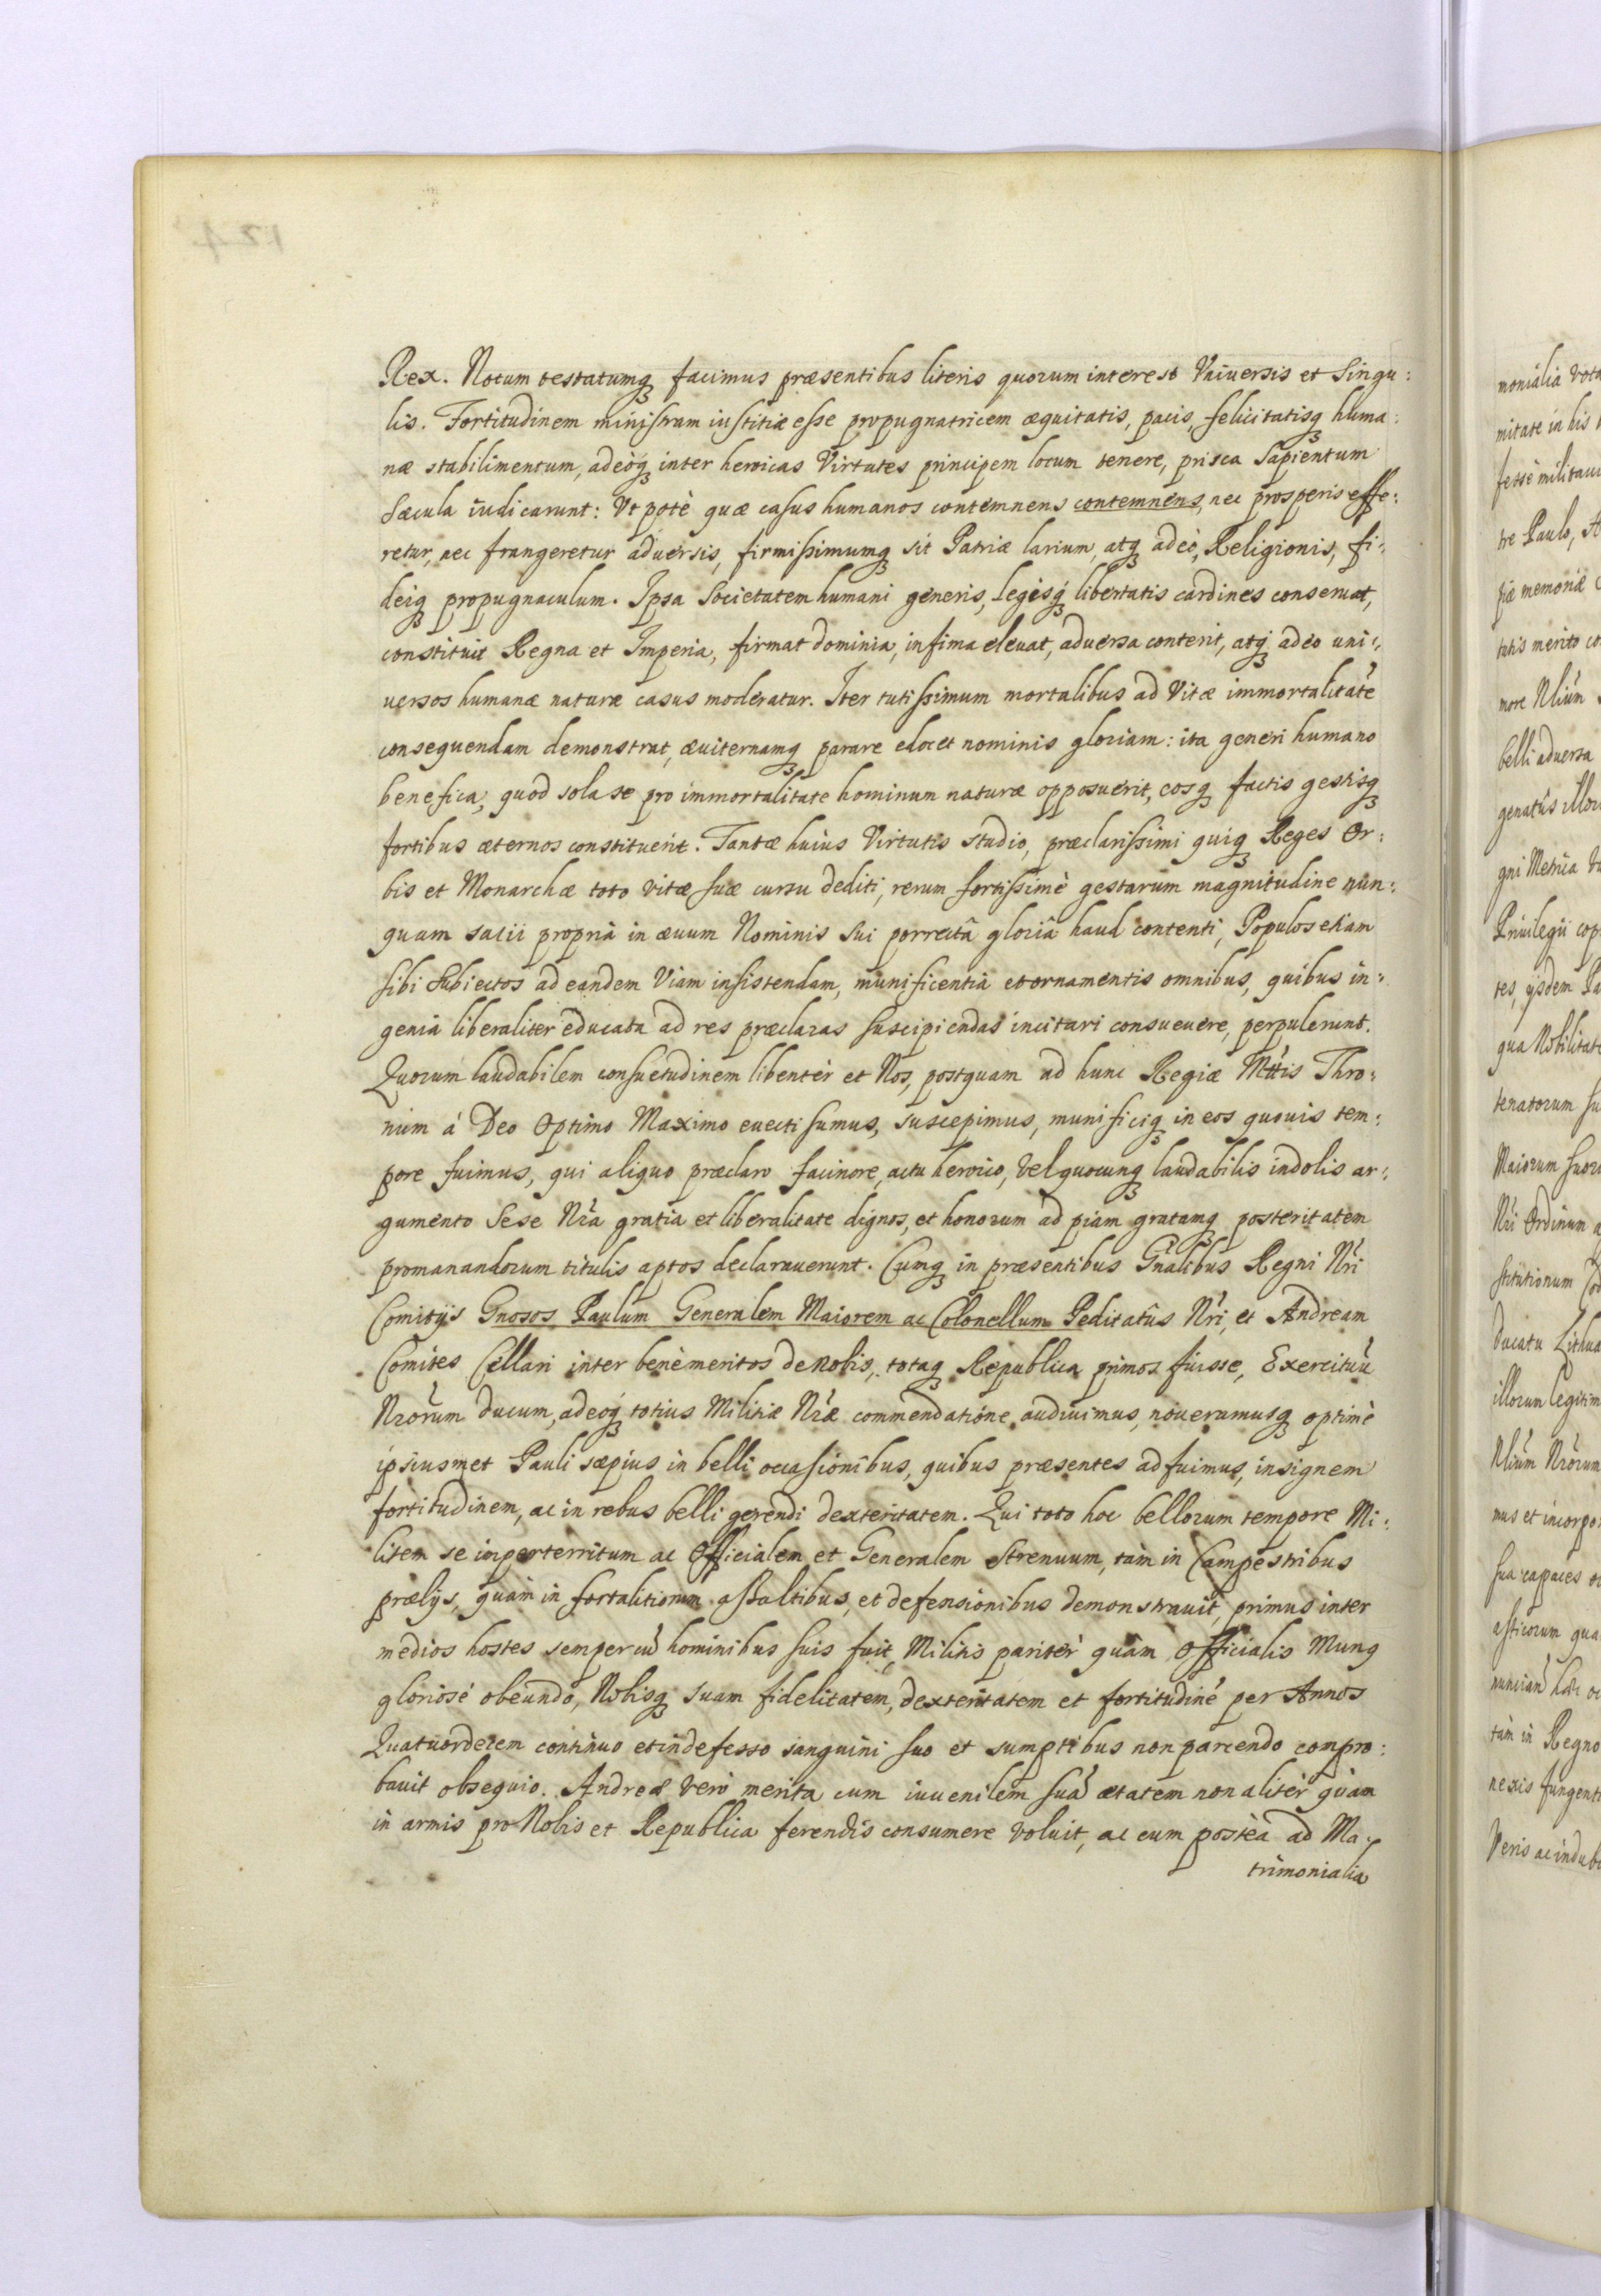 Rex. Notum testatumq₃ facimus præsentibus literis quorum interest Vniuersis et Singu:
lis. Fortitudinem ministram iustitiæ esse propugnatricem æquitatis, pacis, felicitatisq₃ huma:
næ stabilimentum, adeòq₃ inter heroicas Virtutes principem locum tenere, prisca Sapientum
Sæcula iudicarunt: Vt potè quæ casus humanos contemnens contemnens, nec prosperis effe:
retur, nec frangeretur aduersis, firmissimumq₃ sit Patriæ larium, atq₃ adeò, Religionis, fi:
deiq₃ propugnaculum. Ipsa Societatem humani generis, legesq₃ libertatis cardines conseruat,
constituit Regna et Imperia, firmat dominia, infima eleuat, aduersa conterit, atq₃ adeo uni:
uersos humanæ naturæ casus moderatur. Iter tutissimum mortalibus ad Vitæ immortalitatē
consequendam demonstrat, æuiternamq₃ parare edocet nominis gloriam: ita generi humano
benefica, quod sola se pro immortalitate hominum naturæ opposuerit, eosq₃ factis gestisq₃
fortibus æternos constituerit. Tantæ huius Virtutis studio, præclarissimi quiq₃ Reges Or:
bis et Monarchæ toto vitæ suæ cursu dediti, rerum fortissimè gestarum magnitudine nun:
quam satii propriâ in æuum Nominis sui porrectâ gloriâ haud contenti, Populos etiam
sibi Subiectos ad eandem Viam insistendam, munificentiâ et ornamentis omnibus, quibus in:
genia liberaliter educata ad res præclaras suscipiendas incitari consueuere, perpulerunt.
Quorum laudabilem consuetudinem libenter et Nos, postquam ad hunc Regiæ Mttis Thro:
num à Deo Optimo Maximo euecti sumus, suscepimus, munificiq₃ in eos quouis tem:
pore fuimus, qui aliquo præclaro facinore, actu heroico, Vel quocunq₃ laudabilis indolis ar:
gumento Sese Nr̃a gratia et liberalitate dignos, et honorum ad piam gratamq₃ posteritatem
promanandorum titulis aptos declarauerunt. Cumq₃ in præsentibus Gñalibus Regni Nr̃i
Comitijs Gnosos Paulum Generalem Maiorem ac Colonellum Peditatûs Nr̃i, et Andream
Comites Cellari inter benèmeritos de Nobis, totaq₃ Republica primos fuisse, Exercituũ
Nr̃orum ducum, adeoq₃ totius Militiæ Nr̃æ commendatione audiuimus, noueramusq₃ optimè
ipsiusmet Pauli sæpius in belli occasionibus, quibus præsentes adfuimus, insignem
fortitudinem, ac in rebus belli gerendi dexteritatem. Qui toto hoc bellorum tempore Mi:
litem se imperterritum ac Officialem et Generalem Strenuum, tàm in Campestribus
prælijs, quàm in fortalitiorum assaltibus, et defensionibus demonstrauit, primus inter
medios hostes semper cũ hominibus suis fuit, Militis pariter quàm Officialis Munq
gloriosè obeundo, Nobisq₃ suam fidelitatem, dexteritatem et fortitudinē per Annos
Quatuordecem continuo et indefesso sanguini suo et sumptibus non parcendo compro:
bauit obsequio. Andreæ verò merita cum iuuenilem suã ætatem non aliter quàm
in armis pro Nobis et Republica ferendis consumere voluit, ac eum posteà ad Ma:
trimonialia
monialia vota
mitate in his
tre Paulo, A
piæ memoriæ
tutis merito co
more Nlium
belli aduersa
genatûs illor
gni Metrica
Priuilegij cop
tes, ijsdem Pa
qua Nobilitat
tenatorum su
Maiorum suor
Nr̃i Ordinum a
stitutionum Co
Ducatu Lithua
illorum legitim
Nlium Nr̃orum
mus et incorpo
sua capaces
asticorum qua
tàm in Regno
nexis fungent
Veris ac indub